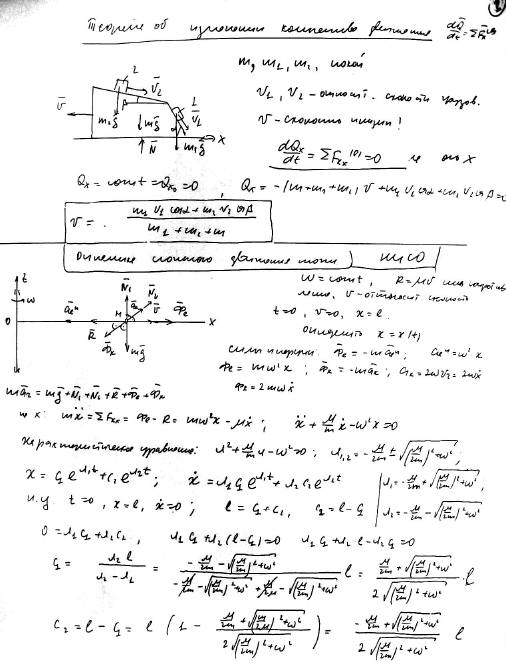 Теорема об изменении количества движения dQ̄/dt = ΣF̄ₖ⁽ᵉ⁾
m, m₂, m₁, покой
v₁, v₂ – относит. скорости грузов.
v – скорость призмы!
dQₓ/dt = ΣFₖₓ⁽ᵉ⁾ = 0
Qₓ = const = Qₓ₀ = 0, Qₓ = -(m+m₁+m₂) v + m₁ v₁ cosα + m₂ v₂ cosβ = 0
v = (m₁ v₁ cosα + m₂ v₂ cosβ) / (m₁ + m₂ + m)
движения точки
ω = const, R = μv
v – относит скорость
t=0, v=0, x=l.
определить x = x(t)
силы инерции: Φ̄ₑ = -m āₑⁿ; aₑⁿ = ω² x
Φₑ = mω² x; Φ̄ₖ = -m āₖ; aₖ = 2ωvᵣ = 2ωẋ
Φₖ = 2mωẋ
mā₂ = mḡ + N̄₁ + N̄₂ + R̄ + Φ̄ₑ + Φ̄ₖ
mẍ = ΣFₖₓ = Φₑ - R = mω²x - μẋ; ẍ + μ/m ẋ - ω²x = 0
Характеристическое уравнение: λ² + μ/m λ - ω² = 0; λ₁,₂ = -μ/2m ± √((μ/2m)² + ω²);
x = C₁e^(λ₁t) + C₂e^(λ₂t); ẋ = λ₁C₁e^(λ₁t) + λ₂C₂e^(λ₂t)
λ₁ = -μ/2m + √((μ/2m)² + ω²),
н.у t=0, x=l, ẋ=0; l = C₁ + C₂, C₂ = l - C₁
λ₂ = -μ/2m - √((μ/2m)² + ω²)
0 = λ₁C₁ + λ₂C₂, λ₁C₁ + λ₂(l - C₁) = 0 λ₁C₁ + λ₂l - λ₂C₁ = 0
C₁ = λ₂ l / (λ₂ - λ₁) = (-μ/2m - √((μ/2m)² + ω²)) / (-μ/2m - √((μ/2m)² + ω²) + μ/2m - √((μ/2m)² + ω²)) l = (μ/2m + √((μ/2m)² + ω²)) / (2√((μ/2m)² + ω²)) · l
C₂ = l - C₁ = l (1 - (μ/2m + √((μ/2m)² + ω²)) / (2√((μ/2m)² + ω²))) = (-μ/2m + √((μ/2m)² + ω²)) / (2√((μ/2m)² + ω²)) l